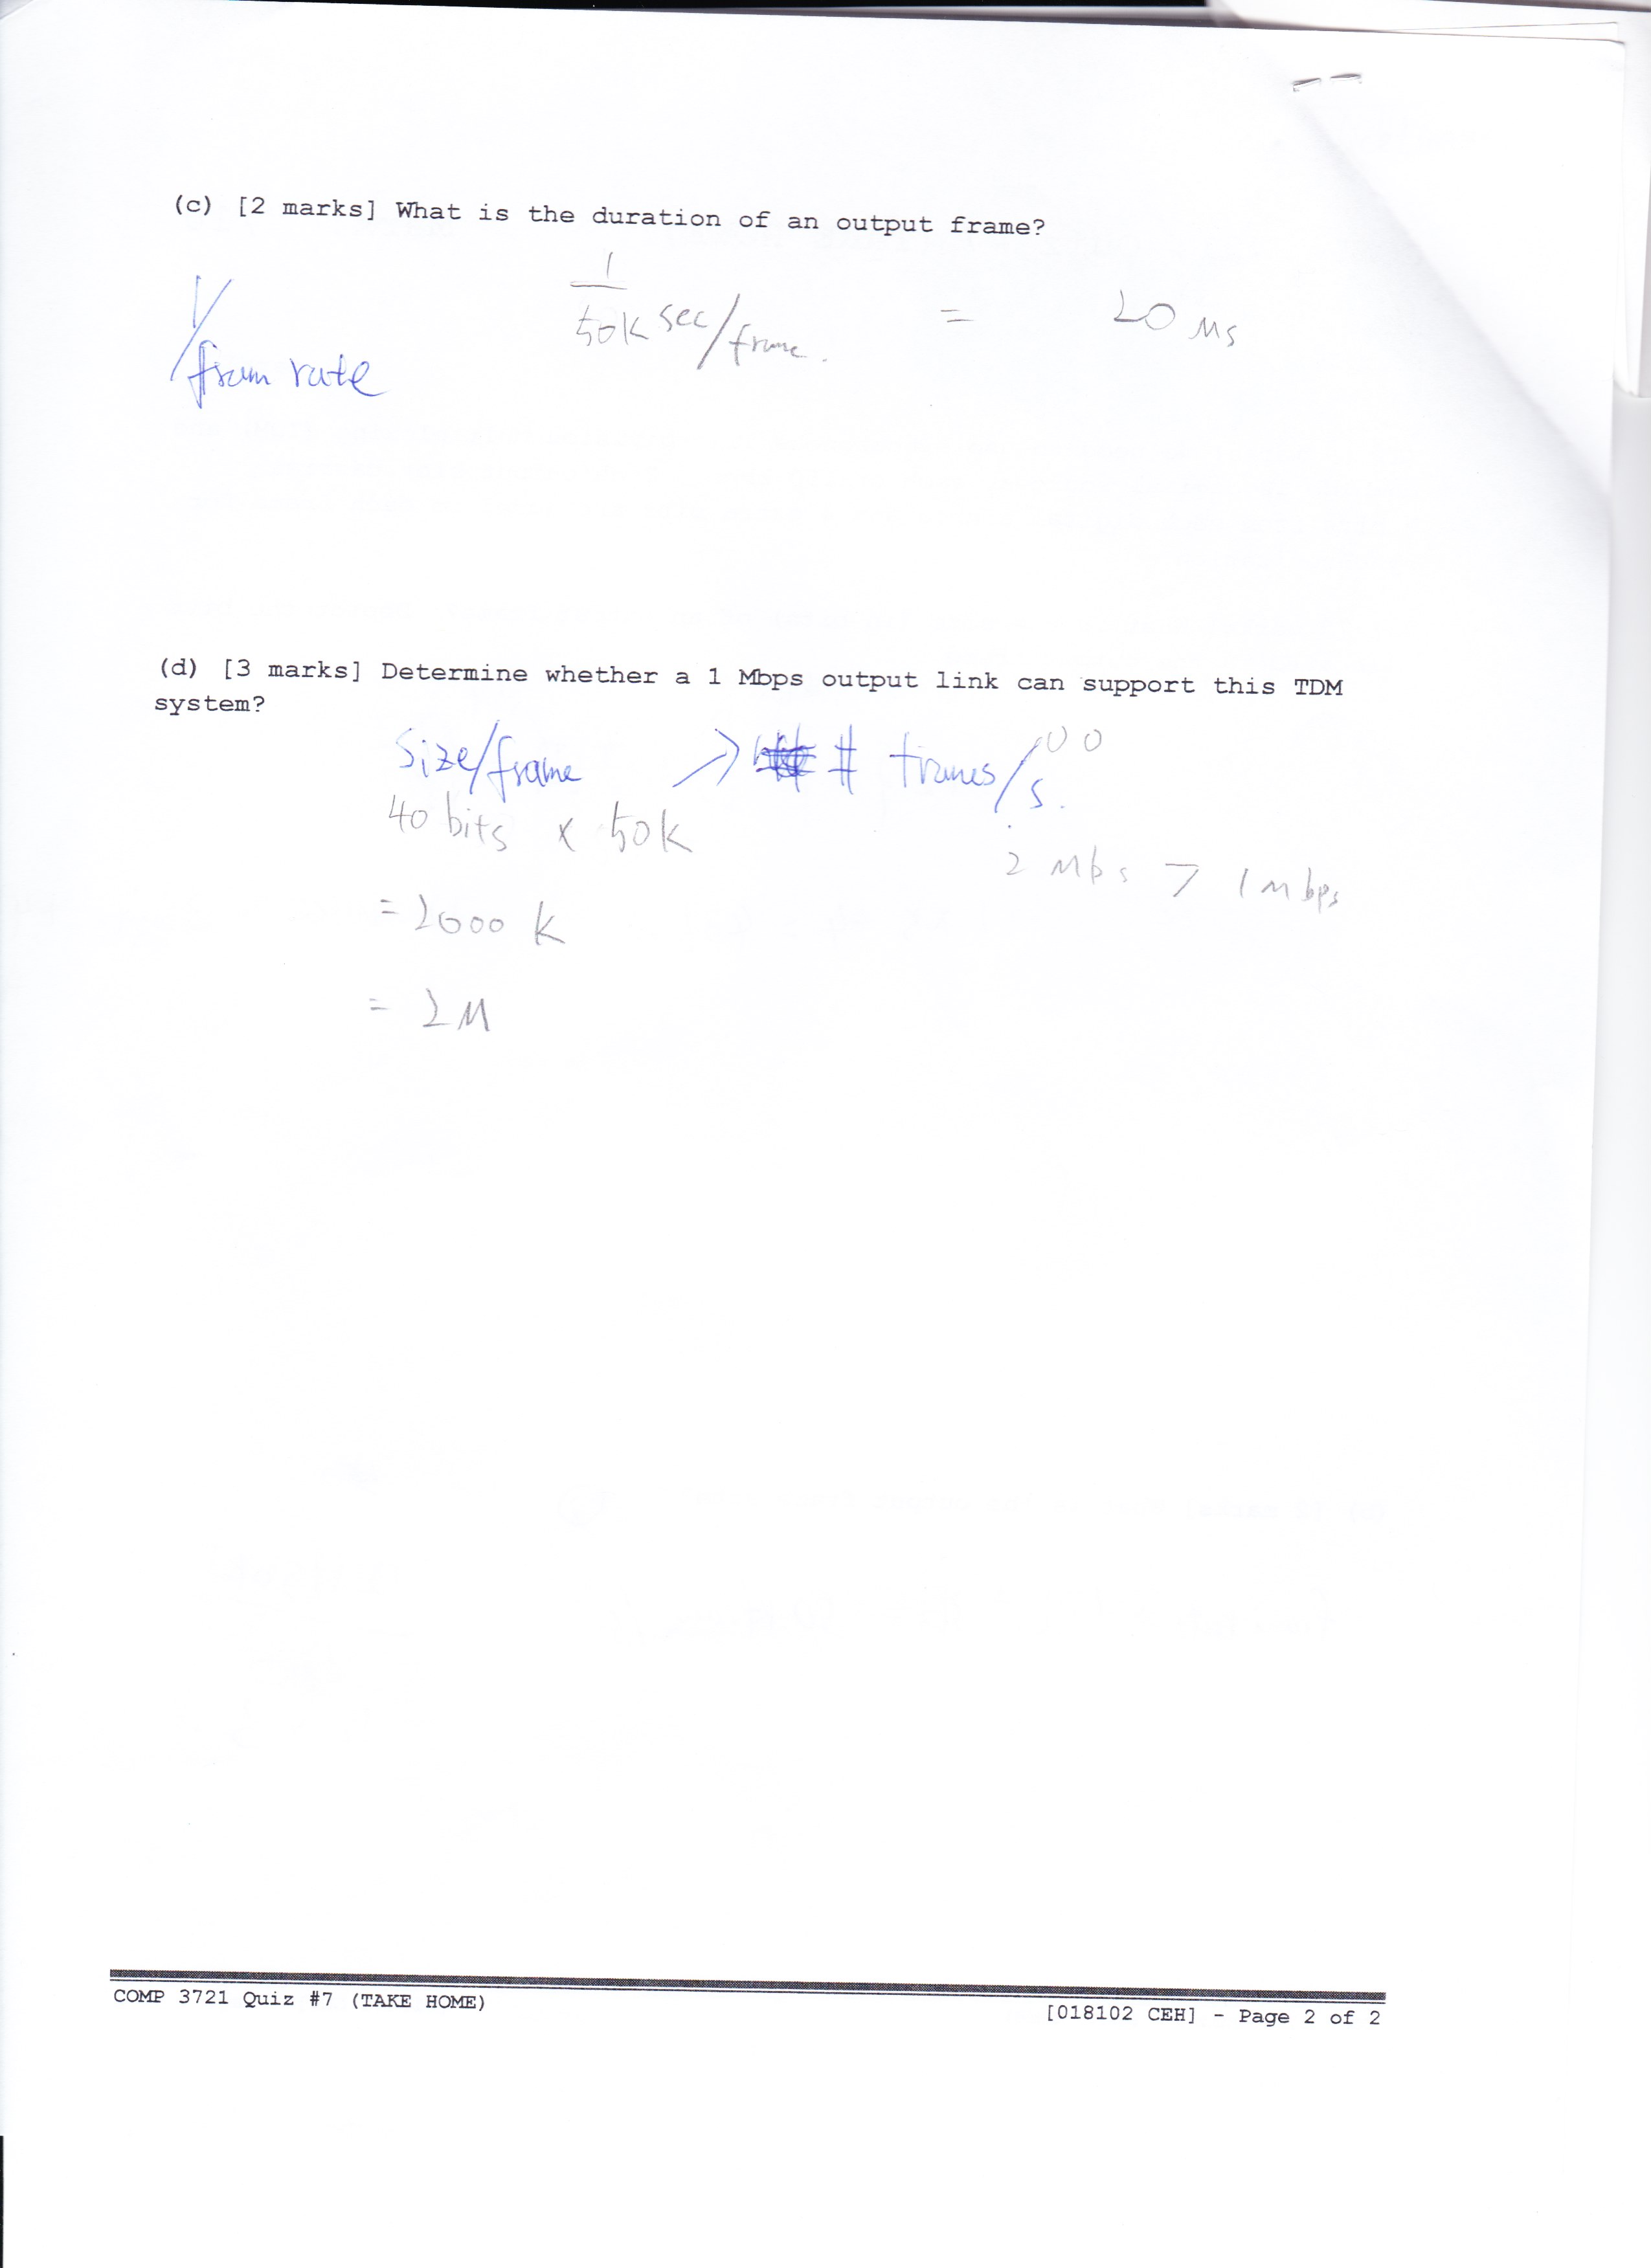 (c) [2 marks] What is the duration of an output frame?
1/fram rate
1
50k sec/frame. = 20 Ms
(d) [3 marks] Determine whether a 1 Mbps output link can support this TDM
system?
Size/frame # frames/s.
40 bits x 50k
2 Mbs > 1 Mbps
= 2000 k
= 2M
COMP 3721 Quiz #7 (TAKE HOME)
[018102 CEH] - Page 2 of 2